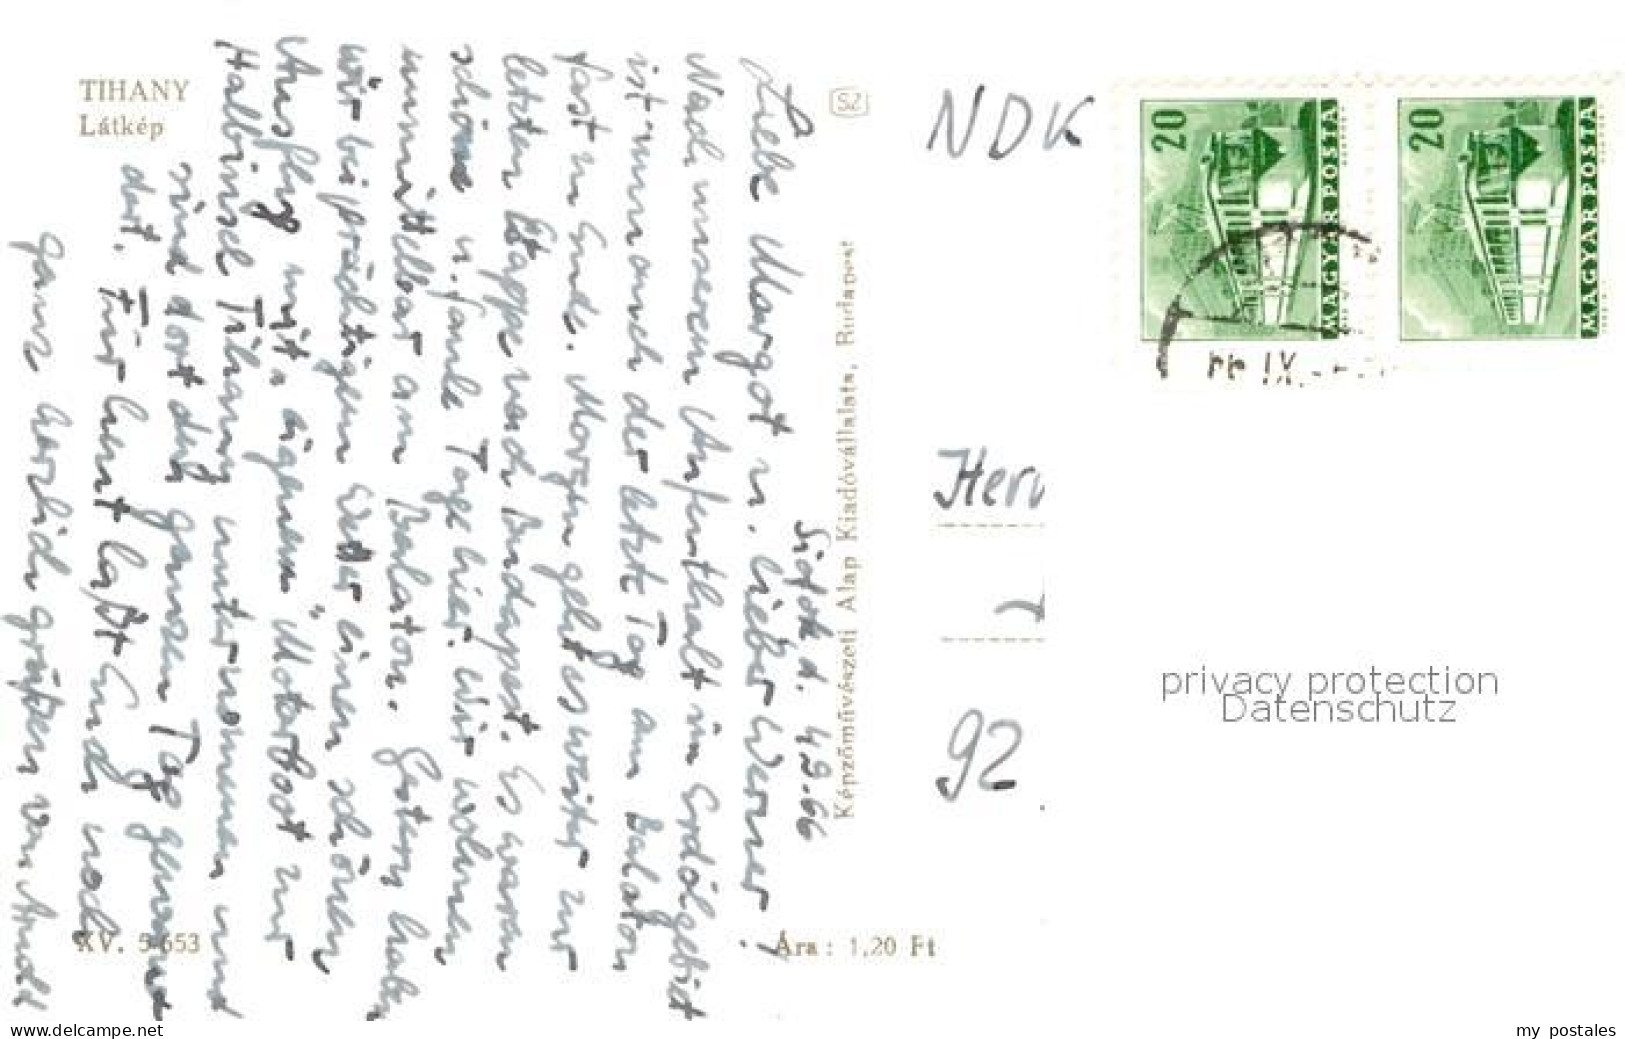 TIHANY
Látkép
Siófok d. 4.9.66
Liebe Margot u. lieber Werner!
Nach unserem Aufenthalt im Erdölgebiet
ist nun auch der letzte Tag am Balaton
fast zu Ende. Morgen geht es weiter zur
letzten Etappe nach Budapest. Es waren
schöne u. faule Tage hier. Wir wohnen
unmittelbar am Balaton. Gestern haben
wir bei prächtigem Wetter einen schönen
Ausflug mit "eigenem" Motorboot zur
Halbinsel Tihany unternommen und
sind dort den ganzen Tag gewesen
dort. Für heut laßt Euch noch
ganz herzlich grüßen von
XV. 5653
Ára: 1,20 Ft
Képzőművészeti Alap Kiadóvállalata, Budapest
SZ
NDK
20
MAGYAR POSTA
20
MAGYAR POSTA
92
privacy protection
Datenschutz
www.delcampe.net
my postales